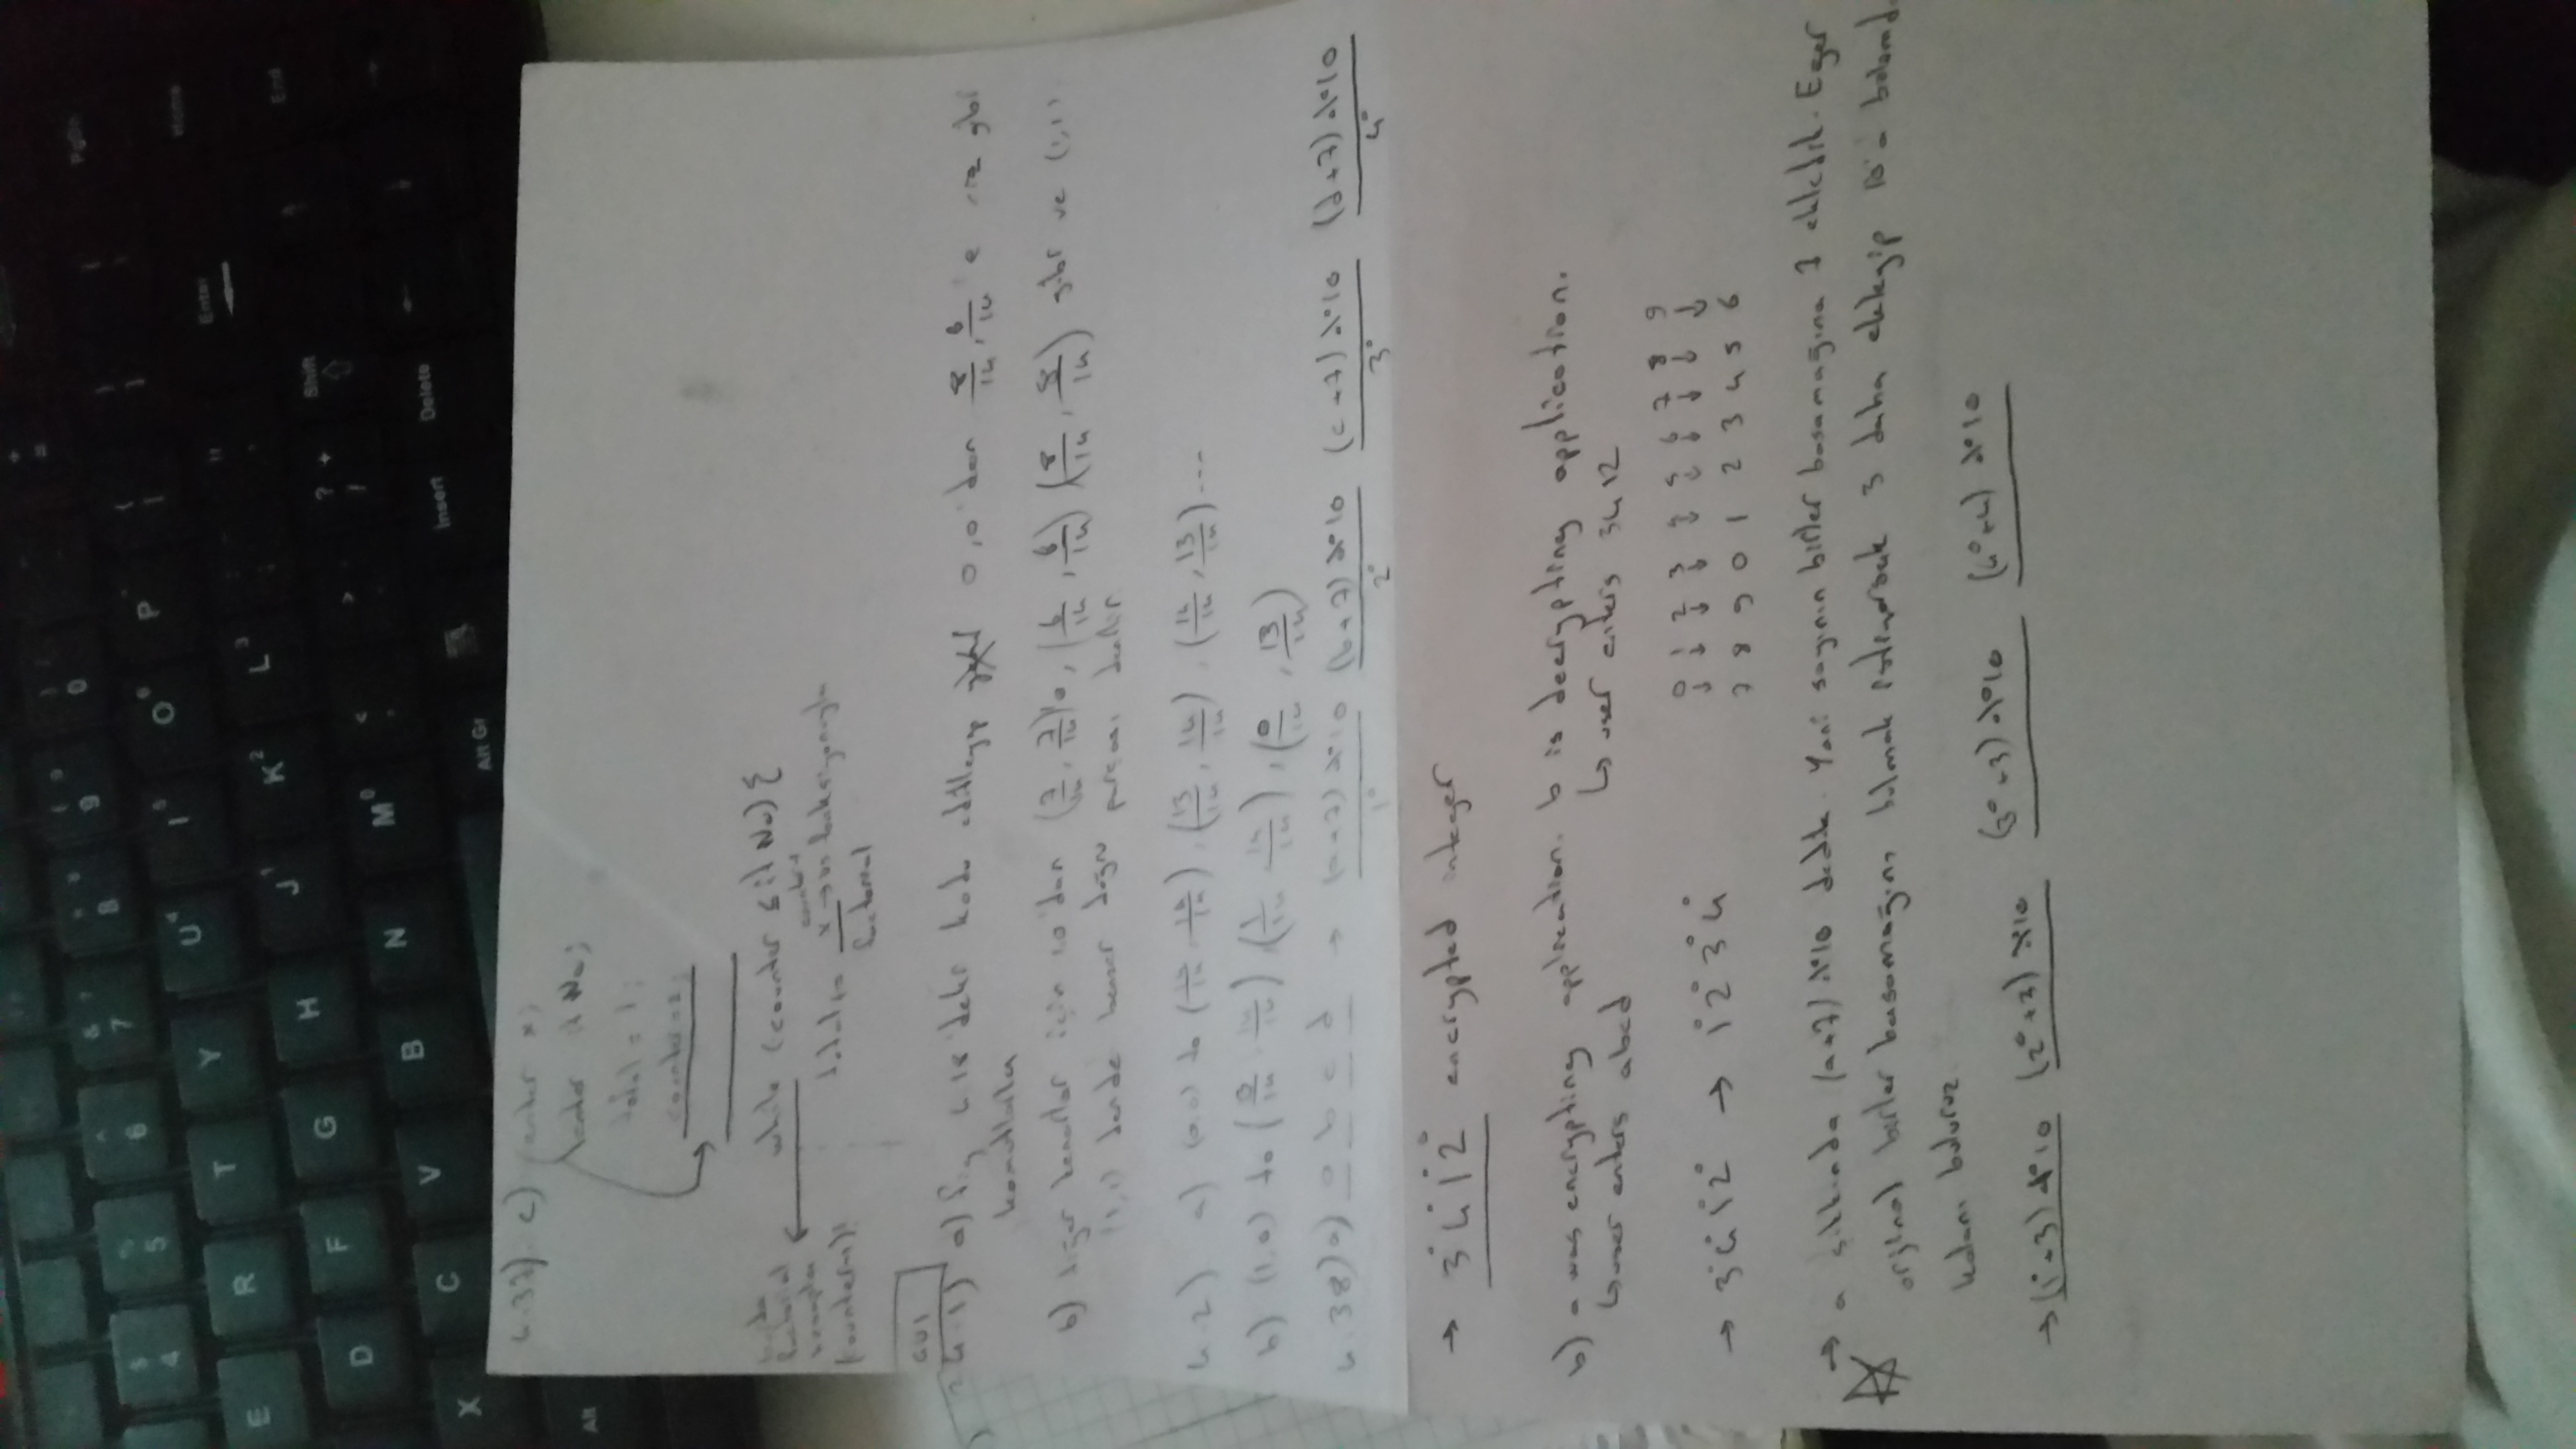 $ 4
% 5
^ 6
& 7
* 8
( 9
) 0
PgDn
E R T Y U 4 I 5 O 6 P { [ } ]
Enter
Home
D F G H J 1 K 2 L 3
End
X C V B N M 0 < > ? / +
Shift
Alt
Alt Gr
Insert
Delete
4.37) c) enter x;
enter it No;
total = 1;
counter = 2;
while (counter ≤ it No) {
factorial
(counter-1)!
total += x counter-1 → us fonksiyonuyla
factorial
GUI
4.1) a) fig 4.18 deki kodu editleyip 0,0'dan 8/14, 6/14 e gibi
komutlarla
b) diğer kenarlar için 1,0'dan (7/14, 7/14)'e, (6/14, 6/14) (8/14, 8/14) gibi ve (1,1)
(1,1) dende benzer doğru parçası
4.2) a) (0,0) to (14/14, 14/14), (13/14, 14/14), (14/14, 13/14)...
b) (1,0) to (0/14, 14/14), (1/14, 14/14), (0/14, 13/14)
4.38) a) a b c d → (a+7) %10 (b+7) %10 (c+7) %10 (d+7) %10
1° 2° 3° 4°
→ 3° 4° 1° 2° encrypted integer
b) a was encrypting application. b is decrypting application.
↳ user enters abcd ↳ user enters 3412
0 1 2 3 4 5 6 7 8 9
→ 3° 4° 1° 2° → 1° 2° 3° 4°
↓ ↓ ↓ ↓ ↓ ↓ ↓ ↓ ↓ ↓
7 8 9 0 1 2 3 4 5 6
→ a şıkkında (a+7) %10 dedik. Yani sayının birler basamağına 7 ekledik. Eğer
orjinal birler basamağını bulmak istiyorsak 3 daha ekleyip 10'a
kalanı buluruz
→ (1°+3) %10 (2°+3) %10 (3°+3) %10 (4°+4) %10